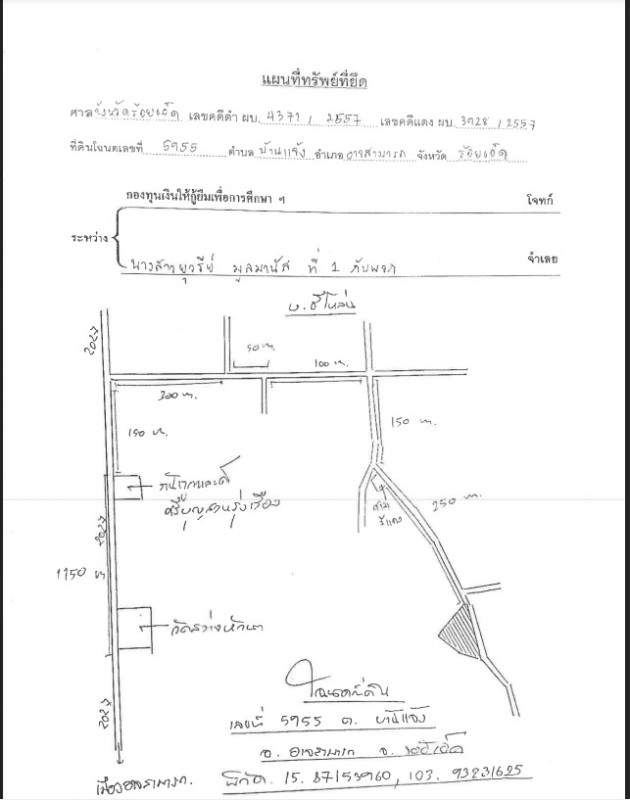 แผนที่ทรัพย์ที่ยึด
ศาลจังหวัดร้อยเอ็ด เลขคดีดำ ผบ. 4371 / 2557 เลขคดีแดง ผบ. 3928 / 2557
ที่ดินโฉนดเลขที่ 5955 ตำบล บ้านแจ้ง อำเภอ อาจสามารถ จังหวัด ร้อยเอ็ด
กองทุนเงินให้กู้ยืมเพื่อการศึกษา ฯ โจทก์
ระหว่าง
นางสาวยุวรีย์ มูลมานัส ที่ 1 กับพวก จำเลย
บ.ขี้โหล่น
2027
50 ม.
100 ม.
300 ม.
150 ม.
150 ม.
250 ม.
ศาลา
2027
1150 ม
วัดสว่างหัคนา
2027
โฉนดที่ดิน
เลขที่ 5955 ต. บ้านแจ้ง
อ. อาจสามารถ จ. ร้อยเอ็ด
เมืองอาจสามารถ. พิกัด. 15. 87153960, 103. 93231625